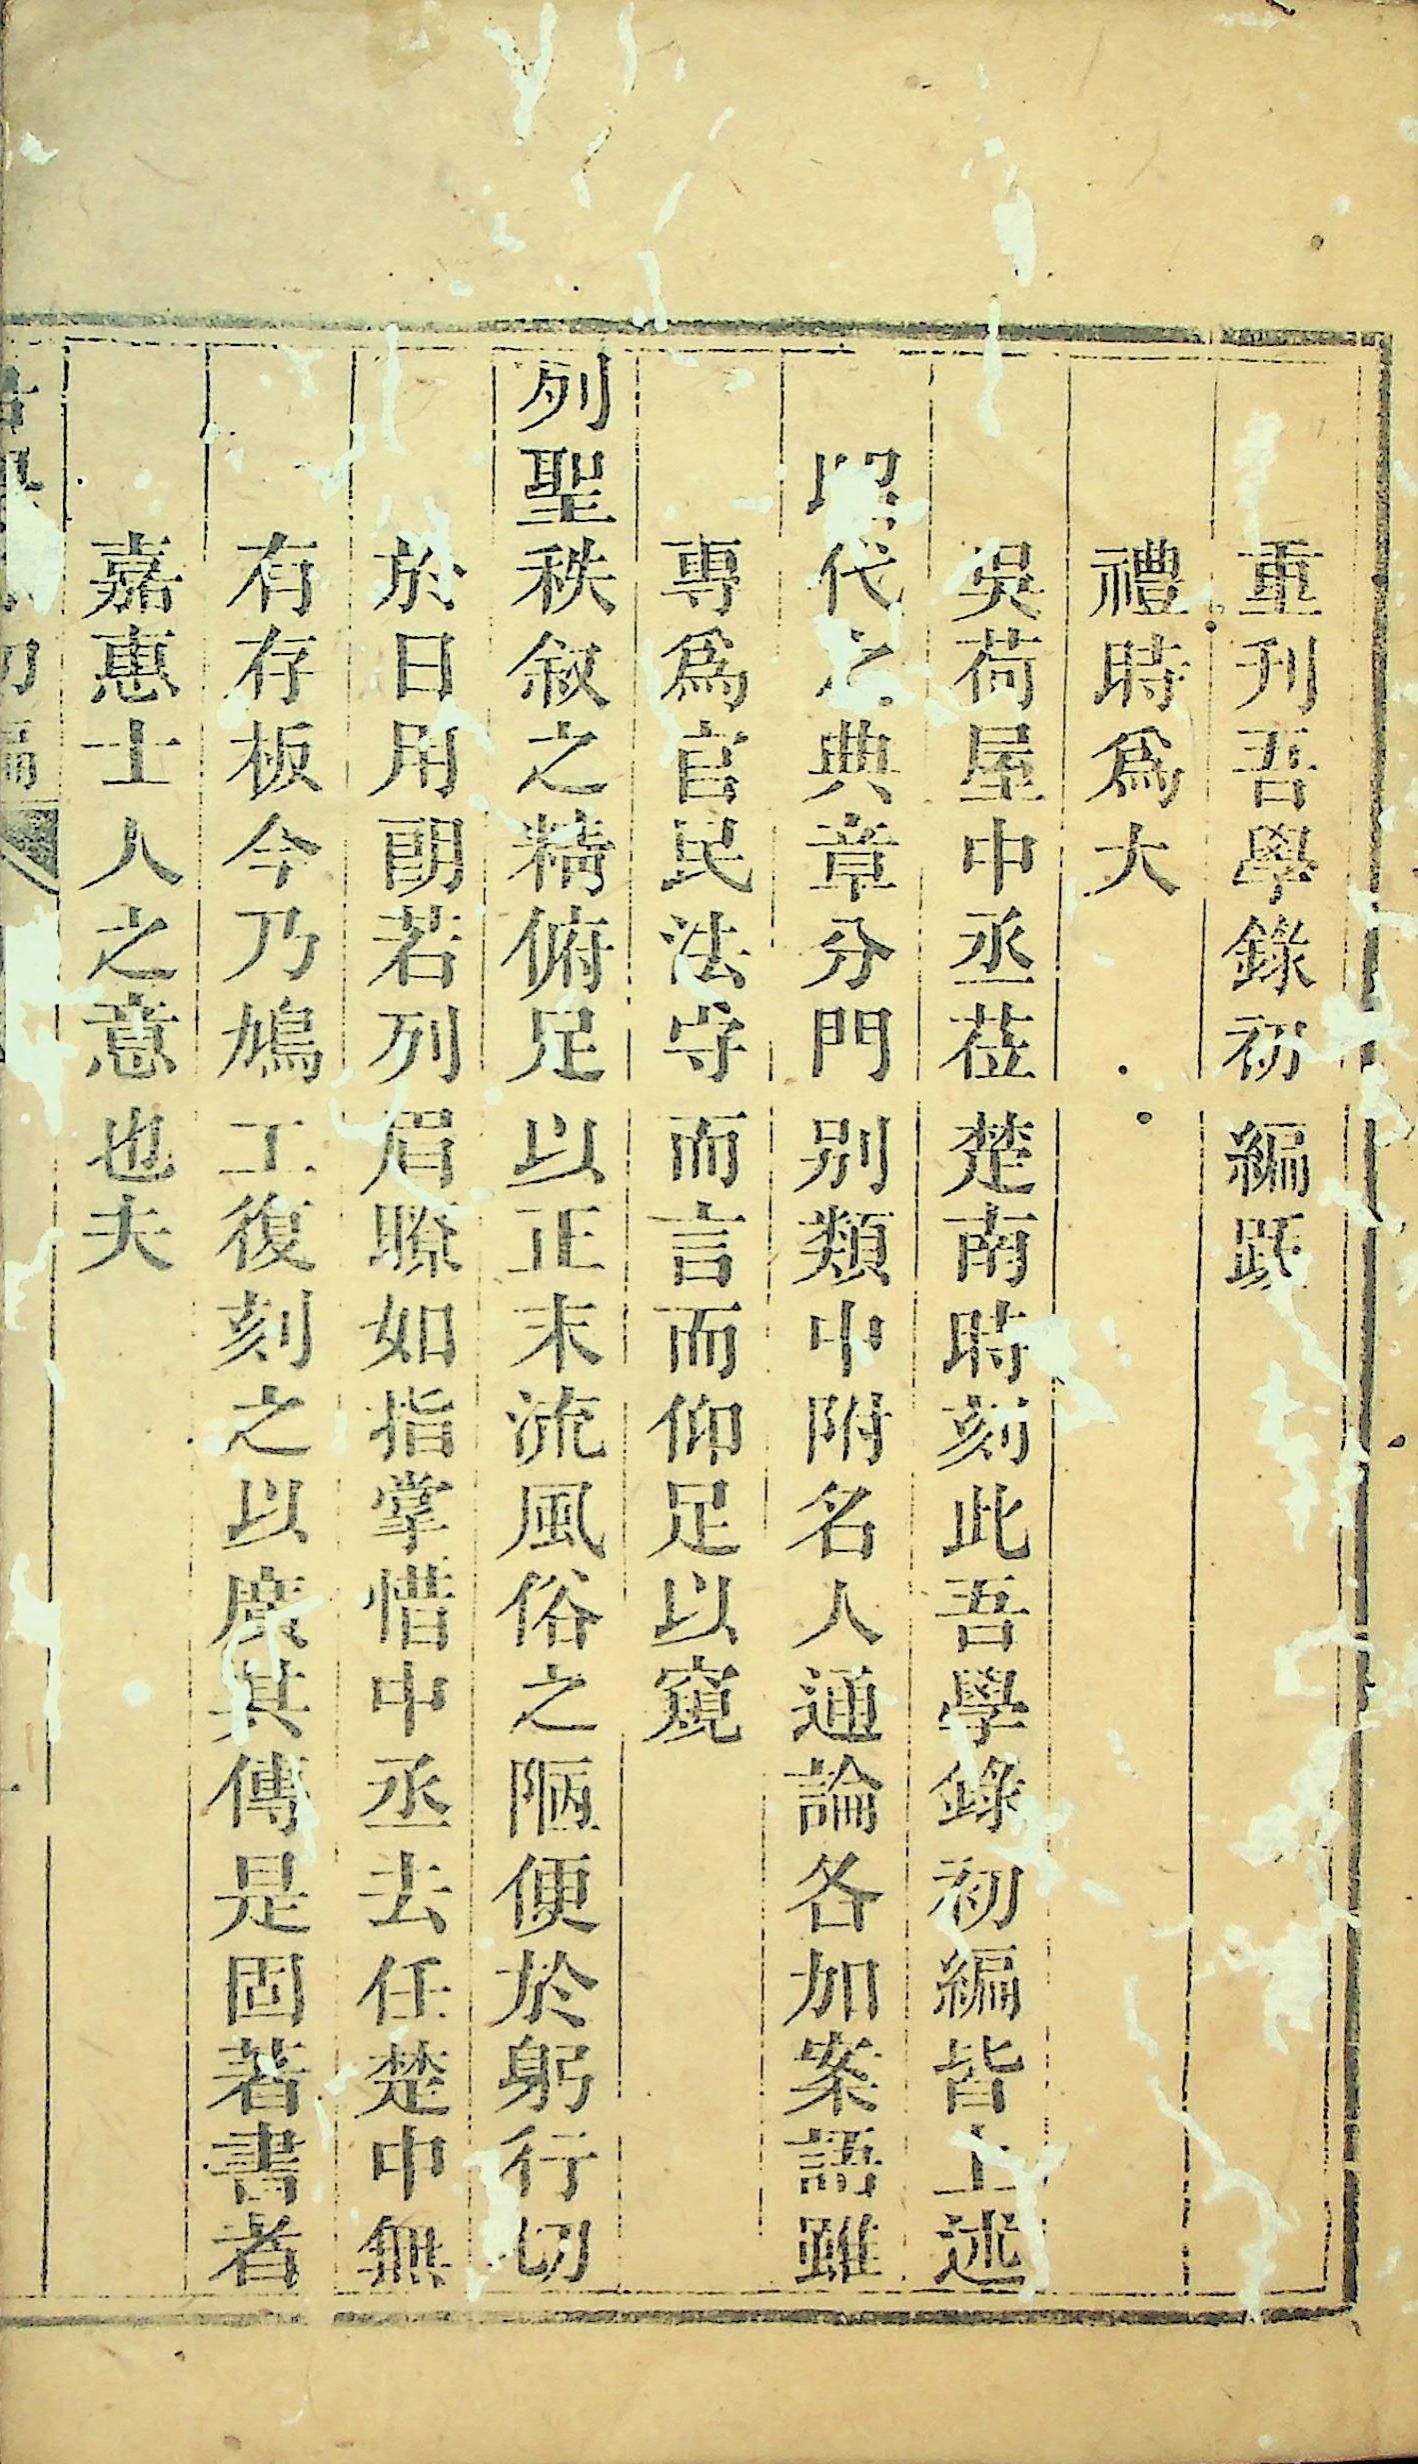 重刊吾學錄初編跋
禮時爲大
吳荷屋中丞莅楚南時刻此吾學錄初編皆上述
昭代之典章分門別類中附名人通論各加案語雖
專爲官民法守而言而仰足以窺
列聖秩敘之精俯足以正末流風俗之陋便於躬行切
於日用朗若列眉瞭如指掌惜中丞去任楚中無
有存板今乃鳩工復刻之以廣其傳是固著書者
嘉惠士人之意也夫